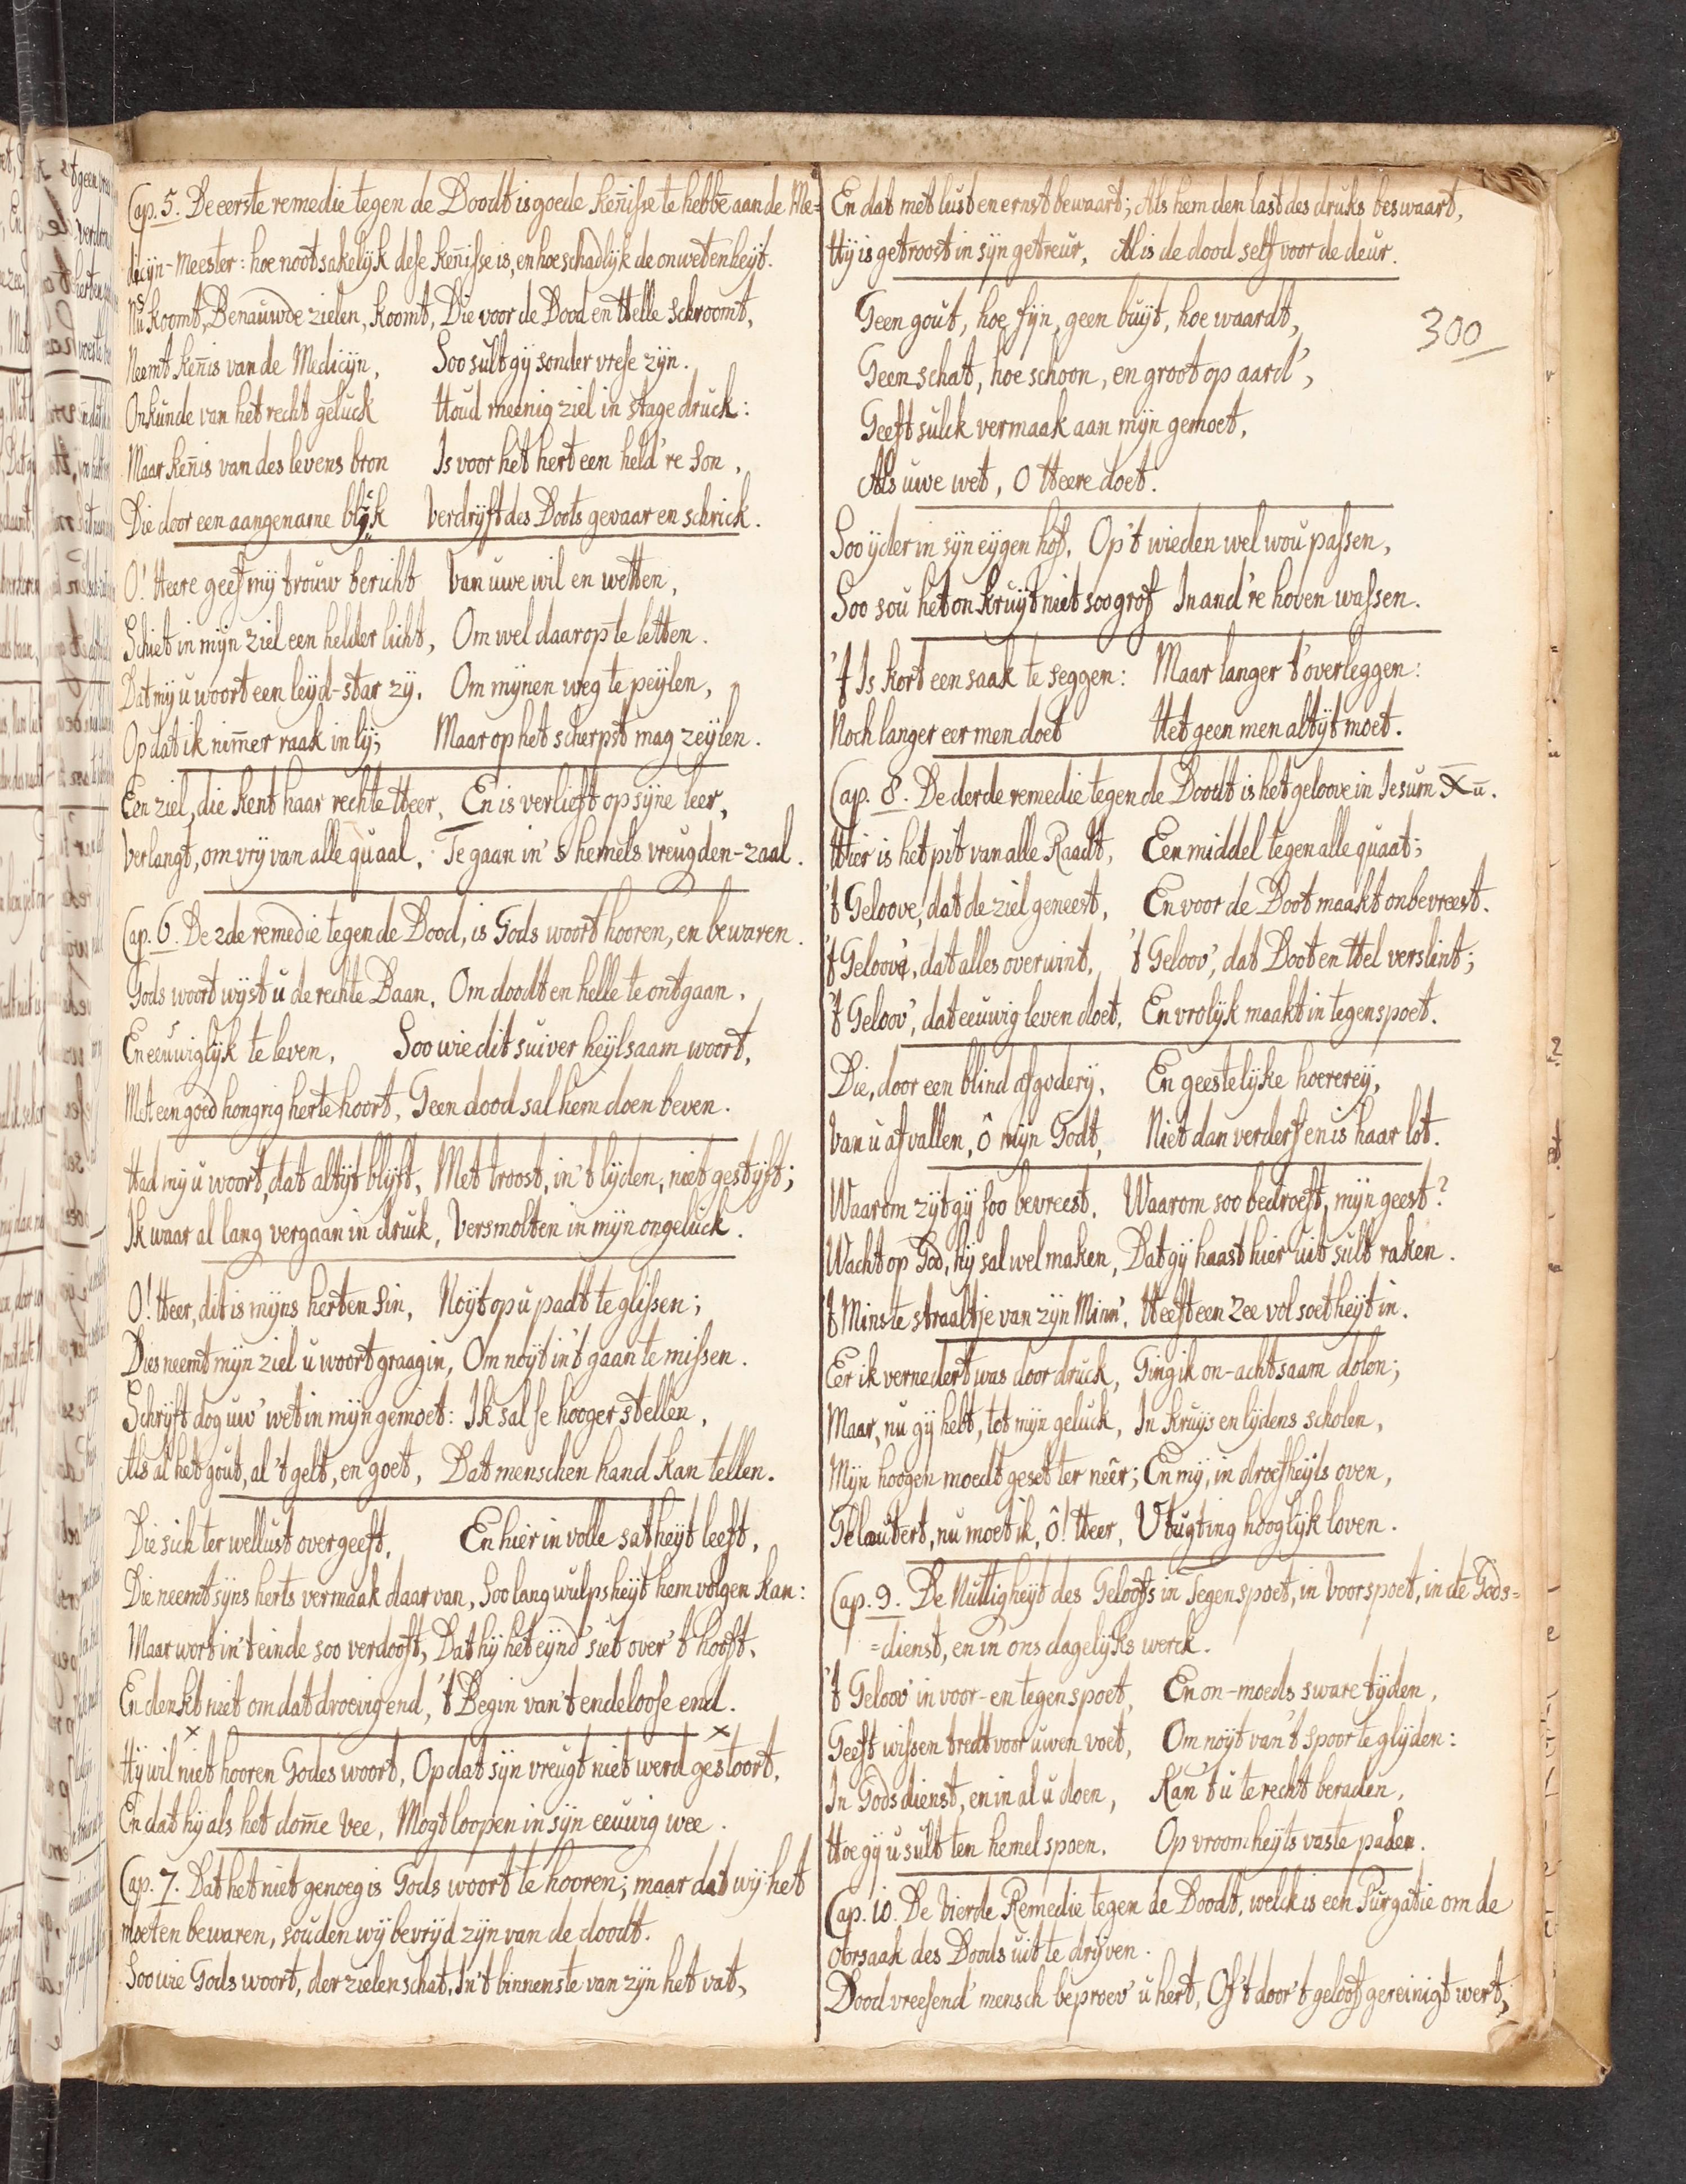 Cap. 5. De eerste remedie tegen de Doodt is goede keñisse te hebbē aan de Me-
decijn-Meester: hoe nootsakelijk dese keñisse is, en hoe schadlijk de onwetenheÿt.
Nu koomt, Benauwde zielen, koomt, Die voor de Dood en Helle schroomt,
Neemt keñis van de Medicijn, Soo sult gij sonder vrese zijn.
Onkunde van het recht geluck Houd meenig ziel in stage druck:
Maar keñis van des levens bron Is voor het hert een held're son,
Die door een aangename blijk Verdrijft des Doots gevaar en schrick.
O! Heere geef mij trouw bericht Van uwe wil en wetten,
Schiet in mijn ziel een helder licht, Om wel daar op te letten.
Dat mij u woort een leijd-star zij, Om mijnen weg te peijlen,
Op dat ik nim̄er raak in lij; Maar op het scherpst mag zeijlen.
Een ziel, die kent haar rechte Heer, En is verlieft op sijne leer,
Verlangt, om vrij van alle quaal, Te gaan in 's hemels vreugden-zaal.
Cap. 6. De 2de remedie tegen de Dood, is Gods woort hooren, en bewaren.
Gods woort wijst u de rechte Baan, Om doodt en helle te ontgaan,
En eeuwiglijk te leven, Soo wie dit suiver heijlsaam woort,
Met een goed hongrig herte hoort, Geen dood sal hem doen beven.
Had mij u woort, dat altijt blijft, Met troost, in 't lijden, niet gestijft;
Ik waar al lang vergaan in druk, Versmolten in mijn ongeluck.
O! Heer, dit is mijns herten sin, Noijt op u padt te glissen;
Dies neemt mijn ziel u woort graag in, Om noijt in 't gaan te missen.
Schrijft dog uw' wet in mijn gemoet: Ik sal se hooger stellen,
Als al het gout, al 't gelt, en goet, Dat menschen hand kan tellen.
Die sich ter wellust overgeeft, En hier in volle satheijt leeft,
Die neemt sijns herts vermaak daar van, Soo lang wulpsheijt hem volgen kan:
Maar wort in 't einde soo verdooft, Dat hij het eijnd' siet over 't hooft,
En denkt niet om dat droevig end, 't Begin van 't endeloose end.
Hij wil niet hooren Godes woort, Op dat sijn vreugt niet werd gestoort,
En dat hij als het dom̄e Vee, Mogt loopen in sijn eeuwig wee.
Cap. 7. Dat het niet genoeg is Gods woort te hooren; maar dat wij het
moeten bewaren, souden wij bevrijd zijn van de doodt.
Soo wie Gods woort, der zielen schat, In 't binnenste van zijn het vat,
En dat met lust en ernst bewaart; Als hem den last des druks beswaart,
Hij is getroost in sijn getreur, Al is de dood self voor de deur.
Geen gout, hoe fijn, geen buijt, hoe waardt,
300
Geen schat, hoe schoon, en groot op aard',
Geeft sulck vermaak aan mijn gemoet,
Als uwe wet, O Heere doet.
Soo ijder in sijn eijgen hof, Op 't wieden wel wou passen,
Soo sou het onkruijt niet soo grof In and're hoven wassen.
't Is kort een saak te seggen: Maar langer t' overleggen:
Noch langer eer men doet Het geen men altijt moet.
Cap. 8. De derde remedie tegen de Doodt is het geloove in Iesum Xū.
Hier is het pit van alle Raadt, Een middel tegen alle quaat;
't Geloove, dat de ziel geneest, En voor de Doot maakt onbevreest.
't Geloov', dat alles overwint, 't Geloov', dat Doot en Hel verslint;
't Geloov', dat eeuwig leven doet, En vrolijk maakt in tegenspoet.
Die, door een blind afgoderij, En geestelijke hoererij,
Van u afvallen, ô mijn Godt, Niet dan verderf en is haar lot.
Waarom zijt gij soo bevreest, Waarom soo bedroeft, mijn geest?
Wacht op God, hij sal wel maken, Dat gij haast hier uit sult raken.
't Minste straaltje van zijn Minn', Heeft een Zee vol soetheijt in.
Eer ik vernedert was door druck, Ging ik on-achtsaam dolen;
Maar, nu gij hebt, tot mijn geluck, In kruijs en lijdens scholen,
Mijn hoogen moedt geset ter neêr; En mij, in droefheijts oven,
Gelautert, nu moet ik, ô! Heer, U tugting hooglijk loven.
Cap. 9. De Nuttigheijt des Geloofs in Tegenspoet, in Voorspoet, in de Gods=
=dienst, en in ons dagelijks werck.
't Geloov' in voor- en tegenspoet, En on-moeds sware tijden,
Geeft wissen tredt voor uwen voet, Om noijt van 't spoor te glijden:
In Gods dienst, en in al u doen, Kan 't u te recht beraden,
Hoe gij u sult ten hemel spoen, Op vroomheijts vaste paden.
Cap. 10. De Vierde Remedie tegen de Doodt, welck is een Purgatie om de
oorsaak des Doods uit te drijven.
Dood vreesend' mensch beproev' u hert, Of 't door 't geloof gereinigt wert,